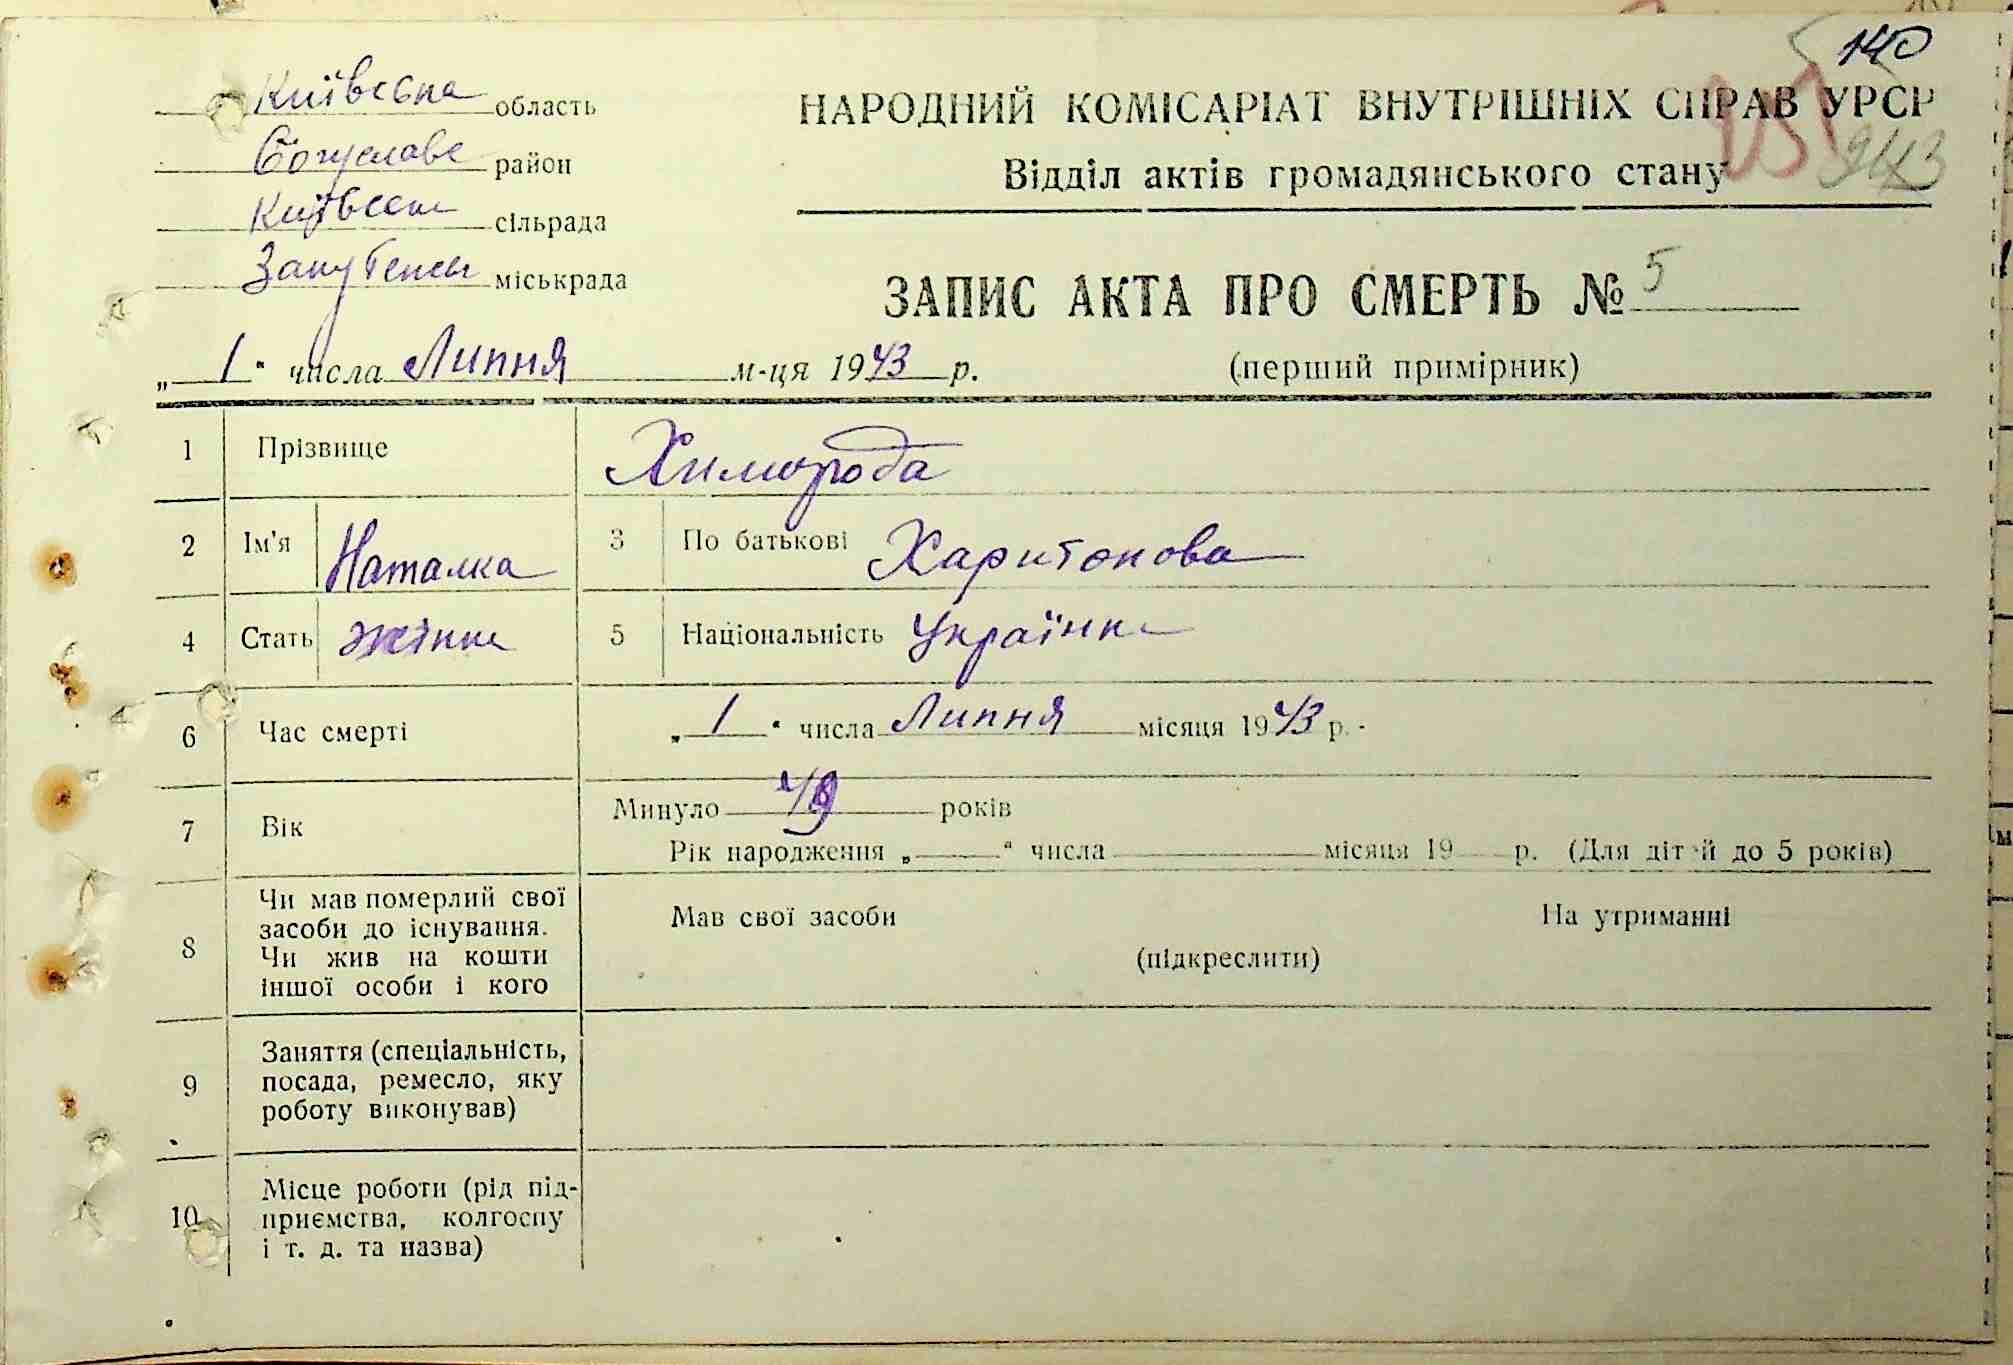 140
Київська область
НАРОДНИЙ КОМІСАРІАТ ВНУТРІШНІХ СПРАВ УРСР
район
Відділ актів громадянського стану
243
сільрада
міськрада
ЗАПИС АКТА ПРО СМЕРТЬ № 5
„ 1 " числа Липня м-ця 1943 р. (перший примірник)
1 Прізвище Химорода
2 Ім'я Наталка 3 По батькові Харитонова
4 Стать жінка 5 Національність Українка
6 Час смерті „ 1 " числа Липня місяця 1943 р.
7 Вік Минуло 49 років
Рік народження „ " числа місяця 19 р. (Для дітей до 5 років)
8 Чи мав померлий свої
засоби до існування.
Чи жив на кошти
іншої особи і кого
Мав свої засоби На утриманні
(підкреслити)
9 Заняття (спеціальність,
посада, ремесло, яку
роботу виконував)
10 Місце роботи (рід під-
приємства, колгоспу
і т. д. та назва)